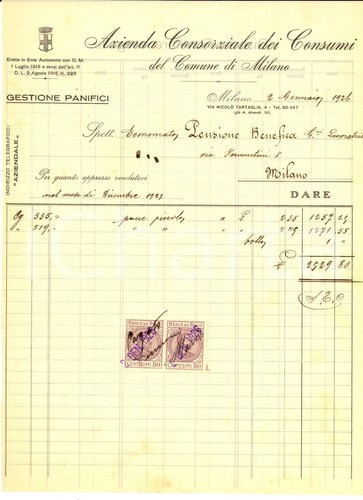 Azienda Consorziale dei Consumi
del Comune di Milano
Eretta in Ente Autonomo con D. M.
1 Luglio 1918 a sensi dell'art. 11
D. L. 2 Agosto 1916 N. 926
GESTIONE PANIFICI
INDIRIZZO TELEGRAFICO: "AZIENDALE"
Milano, 2 Gennaio 1926
VIA NICOLÒ TARTAGLIA, 4 - Tel. 60-447
Spett. Economato Pensione Benefica
via
Milano
Per quanto appresso vendutovi
nel mese di Dicembre 1925
DARE
Cg 535, pane piccolo a £ 2.35 1257 25
" 519, " " " 2.45 1271 55
bollo 1
£ 2529 80
S. E. O
MARCA DA BOLLO MARCA DA BOLLO
CENTESIMI 50 CENTESIMI 50